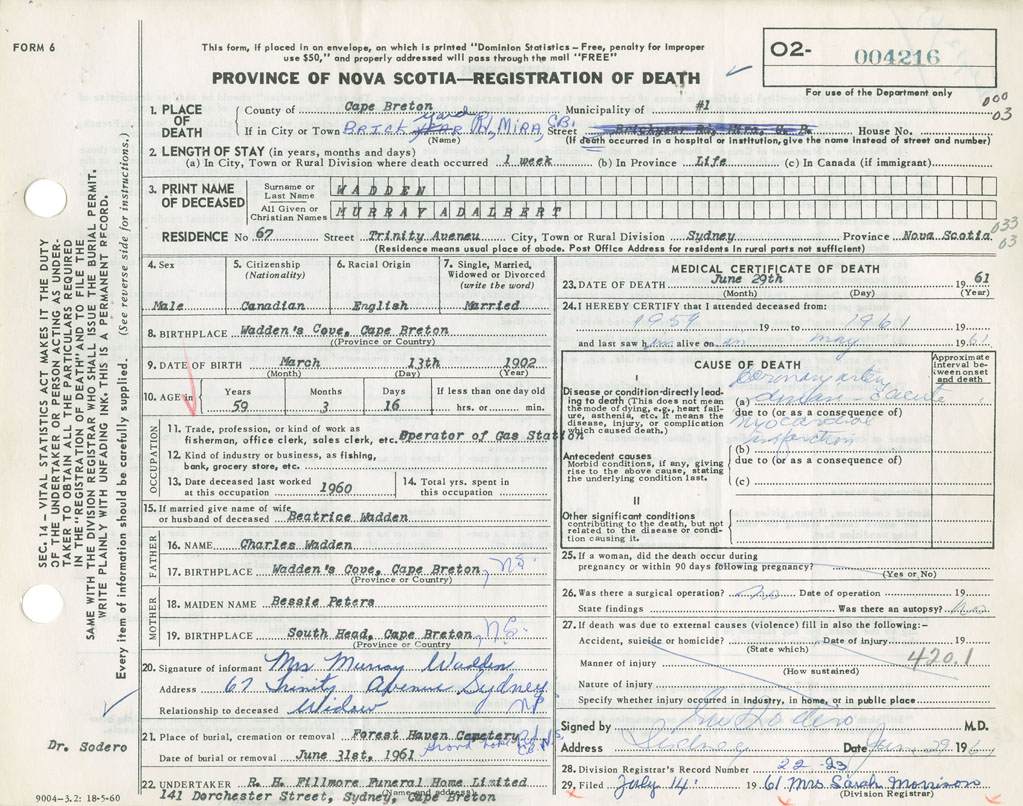 FORM 6
This form, if placed in an envelope, on which is printed "Dominion Statistics — Free, penalty for improper
use $50," and properly addressed will pass through the mail "FREE"
PROVINCE OF NOVA SCOTIA—REGISTRATION OF DEATH
O2- 004216
For use of the Department only
000
03
1. PLACE OF DEATH
County of Cape Breton Municipality of #1
If in City or Town BRICK yard Rd, MIRA, C.B. Street Brickyear Rd, Mira, C. B. House No.
(Name) (If death occurred in a hospital or institution, give the name instead of street and number)
2. LENGTH OF STAY (in years, months and days)
(a) In City, Town or Rural Division where death occurred 1 week (b) In Province Life (c) In Canada (if immigrant)
3. PRINT NAME OF DECEASED
Surname or Last Name WADDEN
All Given or Christian Names MURRAY ADALBERT
RESIDENCE No 67 Street Trinity Aveneu City, Town or Rural Division Sydney Province Nova Scotia
033
03
(Residence means usual place of abode. Post Office Address for residents in rural parts not sufficient)
4. Sex Male
5. Citizenship (Nationality) Canadian
6. Racial Origin English
7. Single, Married, Widowed or Divorced (write the word) Married
8. BIRTHPLACE Wadden's Cove, Cape Breton
((Province or Country)
9. DATE OF BIRTH March 13th 1902
(Month) (Day) (Year)
10. AGE in Years 59 Months 3 Days 16 If less than one day old hrs. or min.
OCCUPATION
11. Trade, profession, or kind of work as
fisherman, office clerk, sales clerk, etc. Operator of Gas Station
12. Kind of industry or business, as fishing,
bank, grocery store, etc.
13. Date deceased last worked
at this occupation 1960
14. Total yrs. spent in
this occupation
15. If married give name of wife
or husband of deceased Beatrice Wadden
FATHER
16. NAME Charles Wadden
17. BIRTHPLACE Wadden's Cove, Cape Breton N.S.
(Province or Country)
MOTHER
18. MAIDEN NAME Bessie Peters
19. BIRTHPLACE South Head, Cape Breton N.S.
(Province or Country)
20. Signature of informant Mrs Murray Wadden
Address 67 Trinity Avenue Sydney
Relationship to deceased Widow
21. Place of burial, cremation or removal Forest Haven Cemetery
Date of burial or removal June 31st, 1961
22. UNDERTAKER R. H. Fillmore Funeral Home Limited
(Name and address)
141 Dorchester Street, Sydney, Cape Breton
MEDICAL CERTIFICATE OF DEATH
23. DATE OF DEATH June 29th 1961
(Month) (Day) (Year)
24. I HEREBY CERTIFY that I attended deceased from:
1959 19 to 1961 19
and last saw him alive on in May 1961
CAUSE OF DEATH
Approximate interval between onset and death
I
Disease or condition directly leading to death (This does not mean the mode of dying, e.g., heart failure, asthenia, etc. It means the disease, injury, or complication which caused death.)
(a) Coronary artery disease - acute
due to (or as a consequence of)
myocardial infarction
(b)
due to (or as a consequence of)
(c)
Antecedent causes
Morbid conditions, if any, giving rise to the above cause, stating the underlying condition last.
II
Other significant conditions
contributing to the death, but not related to the disease or condition causing it.
25. If a woman, did the death occur during
pregnancy or within 90 days following pregnancy?
(Yes or No)
26. Was there a surgical operation? no Date of operation 19
State findings Was there an autopsy? no
27. If death was due to external causes (violence) fill in also the following:-
Accident, suicide or homicide? Date of injury 19
(State which)
420.1
Manner of injury
(How sustained)
Nature of injury
Specify whether injury occurred in industry, in home, or in public place
Signed by Sodero M.D.
Address Sydney Date June 29 196
28. Division Registrar's Record Number 22-23
29. Filed July 14 1961 Mrs Sarah Morrison
(Division Registrar)
SEC. 14 — VITAL STATISTICS ACT MAKES IT THE DUTY
OF THE UNDERTAKER OR PERSON ACTING AS UNDER-
TAKER TO OBTAIN ALL THE PARTICULARS REQUIRED
IN THE "REGISTRATION OF DEATH" AND TO FILE THE
SAME WITH THE DIVISION REGISTRAR WHO SHALL ISSUE THE BURIAL PERMIT.
WRITE PLAINLY WITH UNFADING INK. THIS IS A PERMANENT RECORD.
Every item of information should be carefully supplied. (See reverse side for instructions.)
Dr. Sodero
9004-3.2: 18-5-60